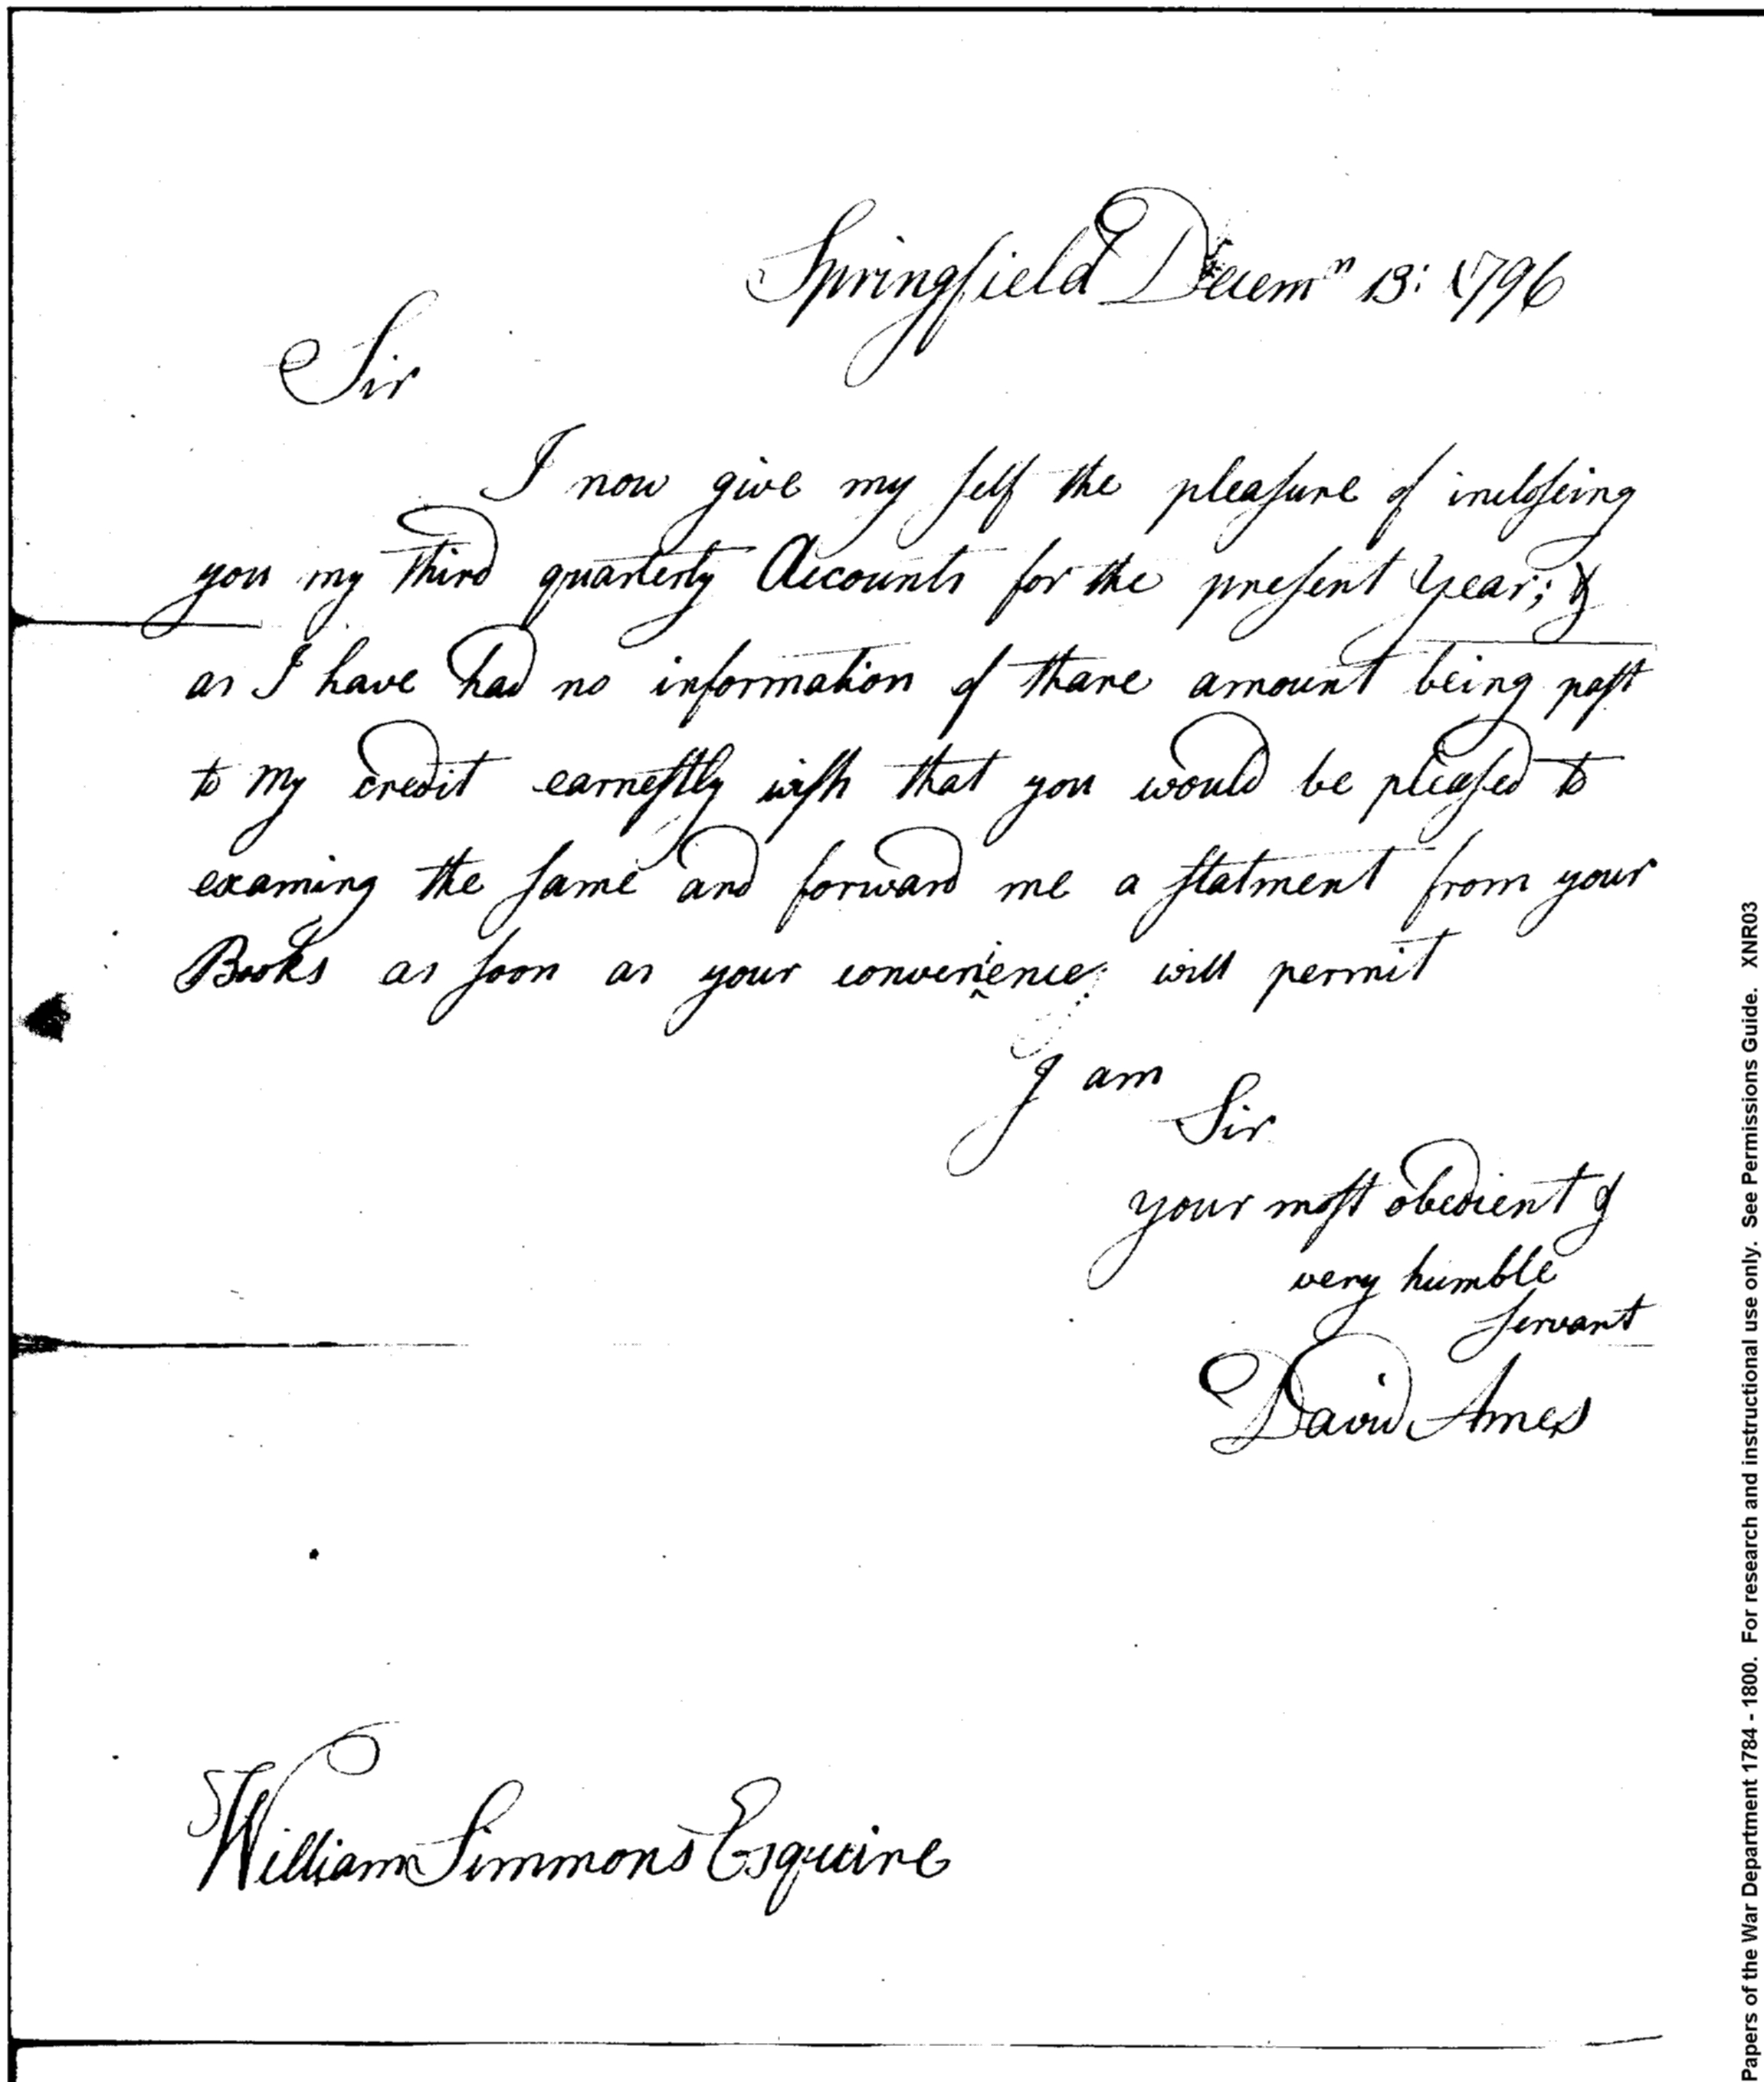 Springfield Decemr 13: 1796
Sir
I now give my self the pleasure of incloseing
you my third quarterly Accounts for the present Year; &
as I have had no information of thare amount being past
to my credit earnestly wish that you would be pleased to
examing the same and forward me a statment from your
Books as soon as your convenience will permit
I am
Sir
your most obedient &
very humble
servant
David Ames
William Simmons Esquire
Papers of the War Department 1784 - 1800. For research and instructional use only. See Permissions Guide. XNR03